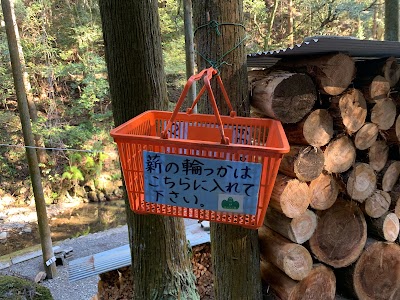 薪の輪っかは
こちらに入れて
下さい。